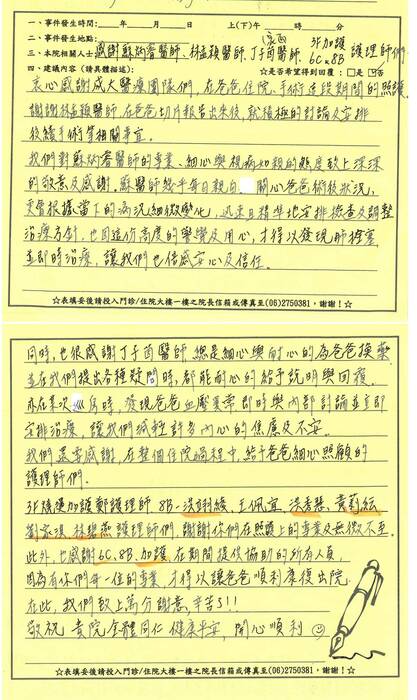 一、事件發生時間：＿＿年＿＿月＿＿日 上(下)午 時 分
二、事件發生地點： 家醫 3F加護
三、本院相關人士感謝蘇炳睿醫師、林孟穎醫師、丁子茵醫師、6C.8B 護理師們.
四、建議內容（請具體描述）： ☆是否希望得到回覆：□是 ☑否
衷心感謝成大醫療團隊們,在爸爸住院、手術這段期間的照護.
謝謝林孟穎醫師,在爸爸切片報告出來後,就積極的討論及安排
後續手術等相關事宜.
我們對蘇炳睿醫師的專業、細心與視病如親的態度致上深深
的敬意及感謝,蘇醫師幾乎每日親自 關心爸爸術後狀況,
更會根據當下的病況細微變化,迅速且精準地安排檢查及調整
治療方針,也因這份高度的警覺及用心,才得以發現肺栓塞
並即時治療,讓我們也倍感安心及信任.
☆表填妥後請投入門診/住院大樓一樓之院長信箱或傳真至(06)2750381，謝謝！☆
同時,也很感謝丁子茵醫師,總是細心與耐心的為爸爸換藥
並在我們提出各種疑問時,都能耐心的給予說明與回覆.
亦在某次巡房時,發現爸爸血壓異常即時與內部討論並立即
安排治療,讓我們減輕許多內心的焦慮及不安.
我們非常感謝,在整個住院過程中,給予爸爸細心照顧的
護理師們.
3F 加護鄭護理師 8B-洪翊綾、王佩宜、洪秀慧、黃莉絃
劉家琪、林碧燕護理師們,謝謝你們在照護上的專業及無微不至.
此外,也感謝6C、8B、加護,在期間提供協助的所有人員,
因為有你們每一位的專業,才得以讓爸爸順利康復出院.
在此,我們致上萬分謝意,辛苦了!!
敬祝 貴院全體同仁 健康平安,開心順利
☆表填妥後請投入門診/住院大樓一樓之院長信箱或傳真至(06)2750381，謝謝！☆